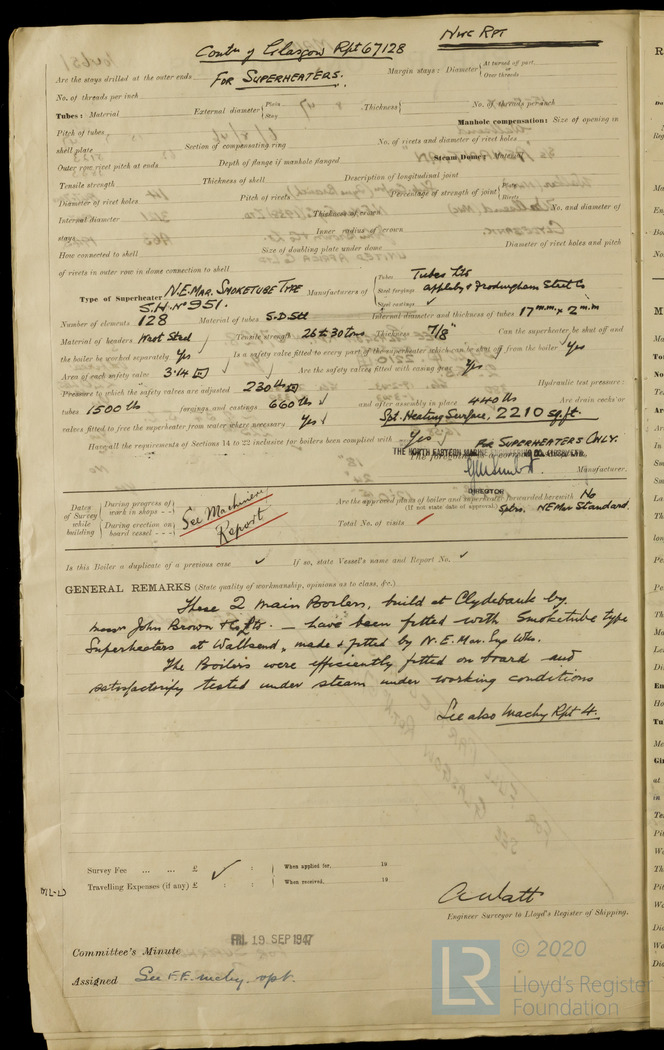 Contn of Glasgow Rpt 67128
Nwc Rpt
FOR SUPERHEATERS.
Are the stays drilled at the outer ends
Margin stays: Diameter { At turned off part, Over threads
No. of threads per inch
Tubes: Material
External diameter { Plain Stay
Thickness {
No. of threads per inch
Pitch of tubes
Manhole compensation: Size of opening in
shell plate
Section of compensating ring
No. of rivets and diameter of rivet holes
Outer row rivet pitch at ends
Depth of flange if manhole flanged
Steam Dome: Material
Tensile strength
Thickness of shell
Description of longitudinal joint
Diameter of rivet holes
Pitch of rivets
Percentage of strength of joint { Plate Rivets
Internal diameter
Thickness of crown
No. and diameter of
stays
Inner radius of crown
How connected to shell
Size of doubling plate under dome
Diameter of rivet holes and pitch
of rivets in outer row in dome connection to shell
Type of Superheater N.E. MAR. SMOKETUBE TYPE S.H. No 951.
Manufacturers of { Tubes Tubes Ltd
Steel forgings Appleby & Frodingham Steel Co
Steel castings ✓
Number of elements 128 Material of tubes S.D. Stl Internal diameter and thickness of tubes 17 m.m. × 2 m.m
Material of headers Wrot Steel Tensile strength 26 & 30 tons Thickness 7/8" Can the superheater be shut off and
the boiler be worked separately Yes Is a safety valve fitted to every part of the superheater which can be shut off from the boiler ✓ Yes
Area of each safety valve 3.14 Are the safety valves fitted with easing gear Yes
Pressure to which the safety valves are adjusted 230 lbs Hydraulic test pressure:
tubes 1500 lbs forgings and castings 660 lbs ✓ and after assembly in place 440 lbs Are drain cocks or
valves fitted to free the superheater from water where necessary Yes ✓ Spt. Heating Surface, 2210 sq. ft.
Have all the requirements of Sections 14 to 22 inclusive for boilers been complied with Yes FOR SUPERHEATERS ONLY.
THE NORTH EASTERN MARINE
Manufacturer.
DIRECTOR
Dates of Survey while building { During progress of work in shops - -
During erection on board vessel - - -
See Machinery Report
Are the approved plans of boiler and superheater forwarded herewith No
(If not state date of approval.) Sptrs. N E Mar Standard.
Total No. of visits ✓
Is this Boiler a duplicate of a previous case ✓ If so, state Vessel's name and Report No. ✓
GENERAL REMARKS (State quality of workmanship, opinions as to class, &c.)
These 2 Main Boilers, build at Clydebank by
Messrs John Brown & Co Ltd. — have been fitted with Smoketube type
Superheaters at Wallsend, made & fitted by N. E. Mar. Eng Wks.
The Boilers were efficiently fitted on board and
satisfactorily tested under steam under working conditions
See also Machy Rpt 4.
Survey Fee ... ... £ ✓ : : When applied for, 19
Travelling Expenses (if any) £ : : When received, 19
A Watt
Engineer Surveyor to Lloyd's Register of Shipping.
FRI. 19 SEP 1947
Committee's Minute
Assigned See F.E. mchy. rpt.
LR
© 2020
Lloyd's Register
Foundation